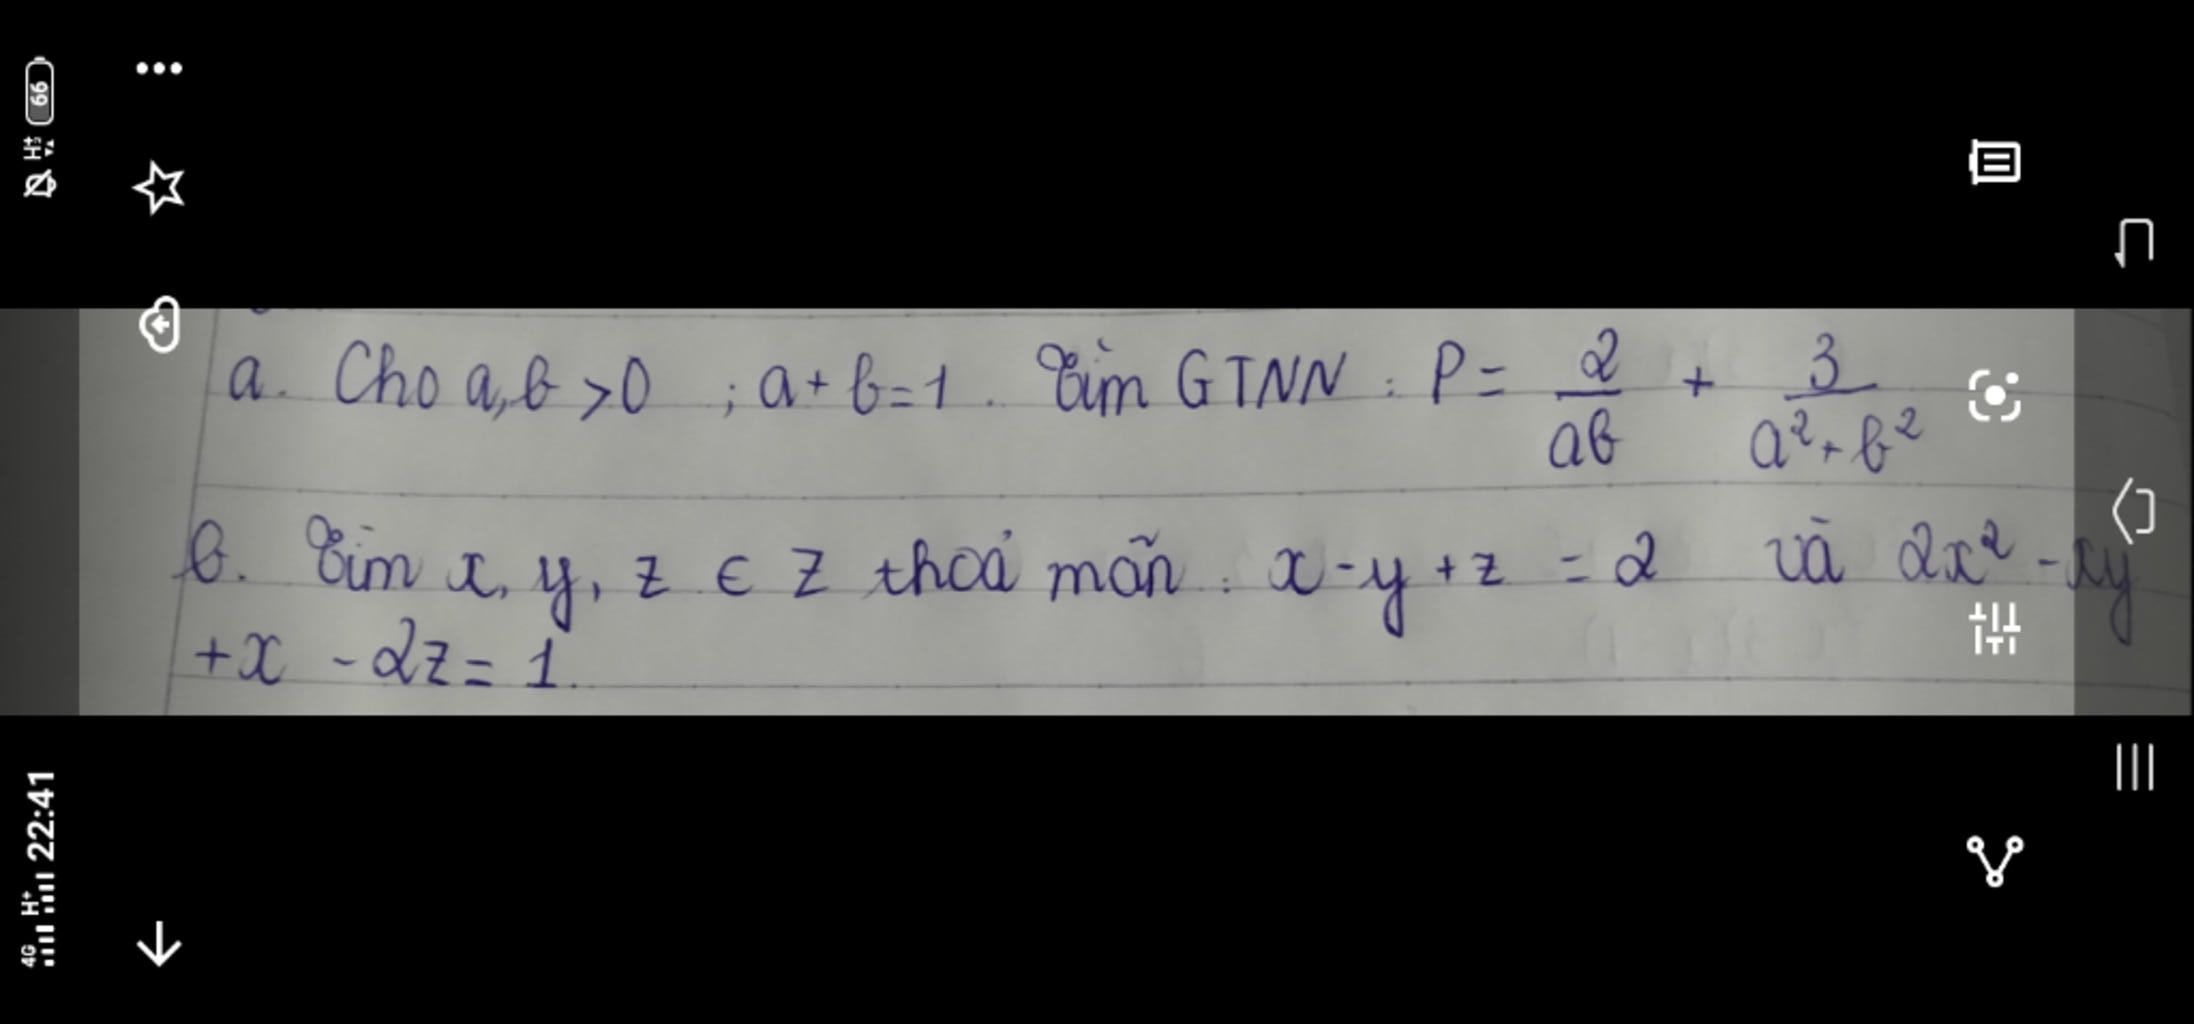 66
H+
a. Cho a, b > 0 ; a + b = 1. Tìm GTNN : P = 2/ab + 3/(a² + b²)
b. Tìm x, y, z ∈ Z thoả mãn : x - y + z = 2 và 2x² - xy
+ x - 2z = 1.
4G H+ 22:41